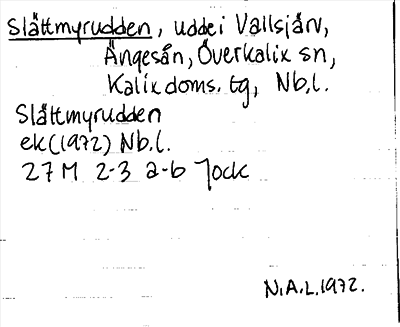 Slåttmyrudden, udde i Vallsjärv,
Ängesån, Överkalix sn,
Kalix doms. tg, Nb.l.
Slåttmyrudden
ek (1972) Nb.l.
27 M 2-3 a-b Jock
N.A.L. 1972.